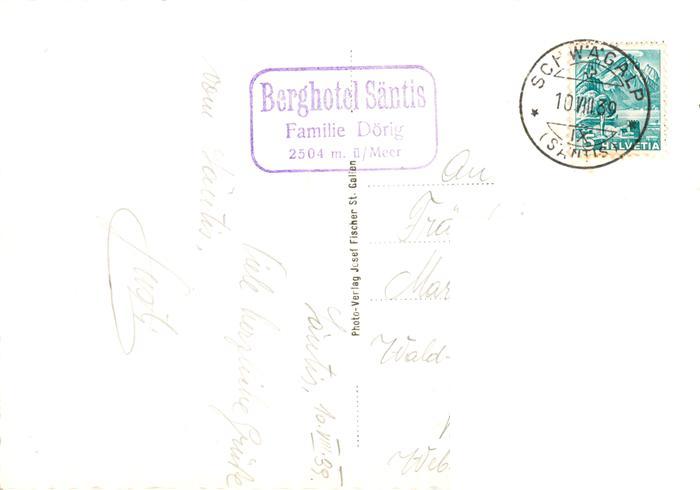 Berghotel Säntis
Familie Dörig
2504 m. ü/Meer
SCHWÄGALP
10.VIII.39
(SÄNTIS)
HELVETIA
Photo-Verlag Josef Fischer St. Gallen
Säntis, 10.VIII.39.
Viele herzliche Grüße
vom Säntis,
An
Frä
Mar
Wald-
Web